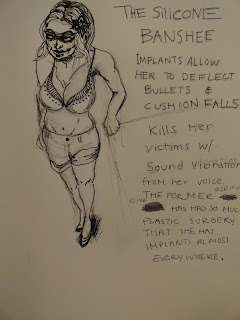 THE SILICONE
BANSHEE
IMPLANTS ALLOW
HER TO DEFLECT
BULLETS &
CUSHION FALLS
Kills Her
victims w/
Sound vibration
from her voice.
THE FORMER
HAS HAD SO MUCH
PLASTIC SURGERY
THAT SHE HAS
IMPLANTS ALMOST
EVERYWHERE.